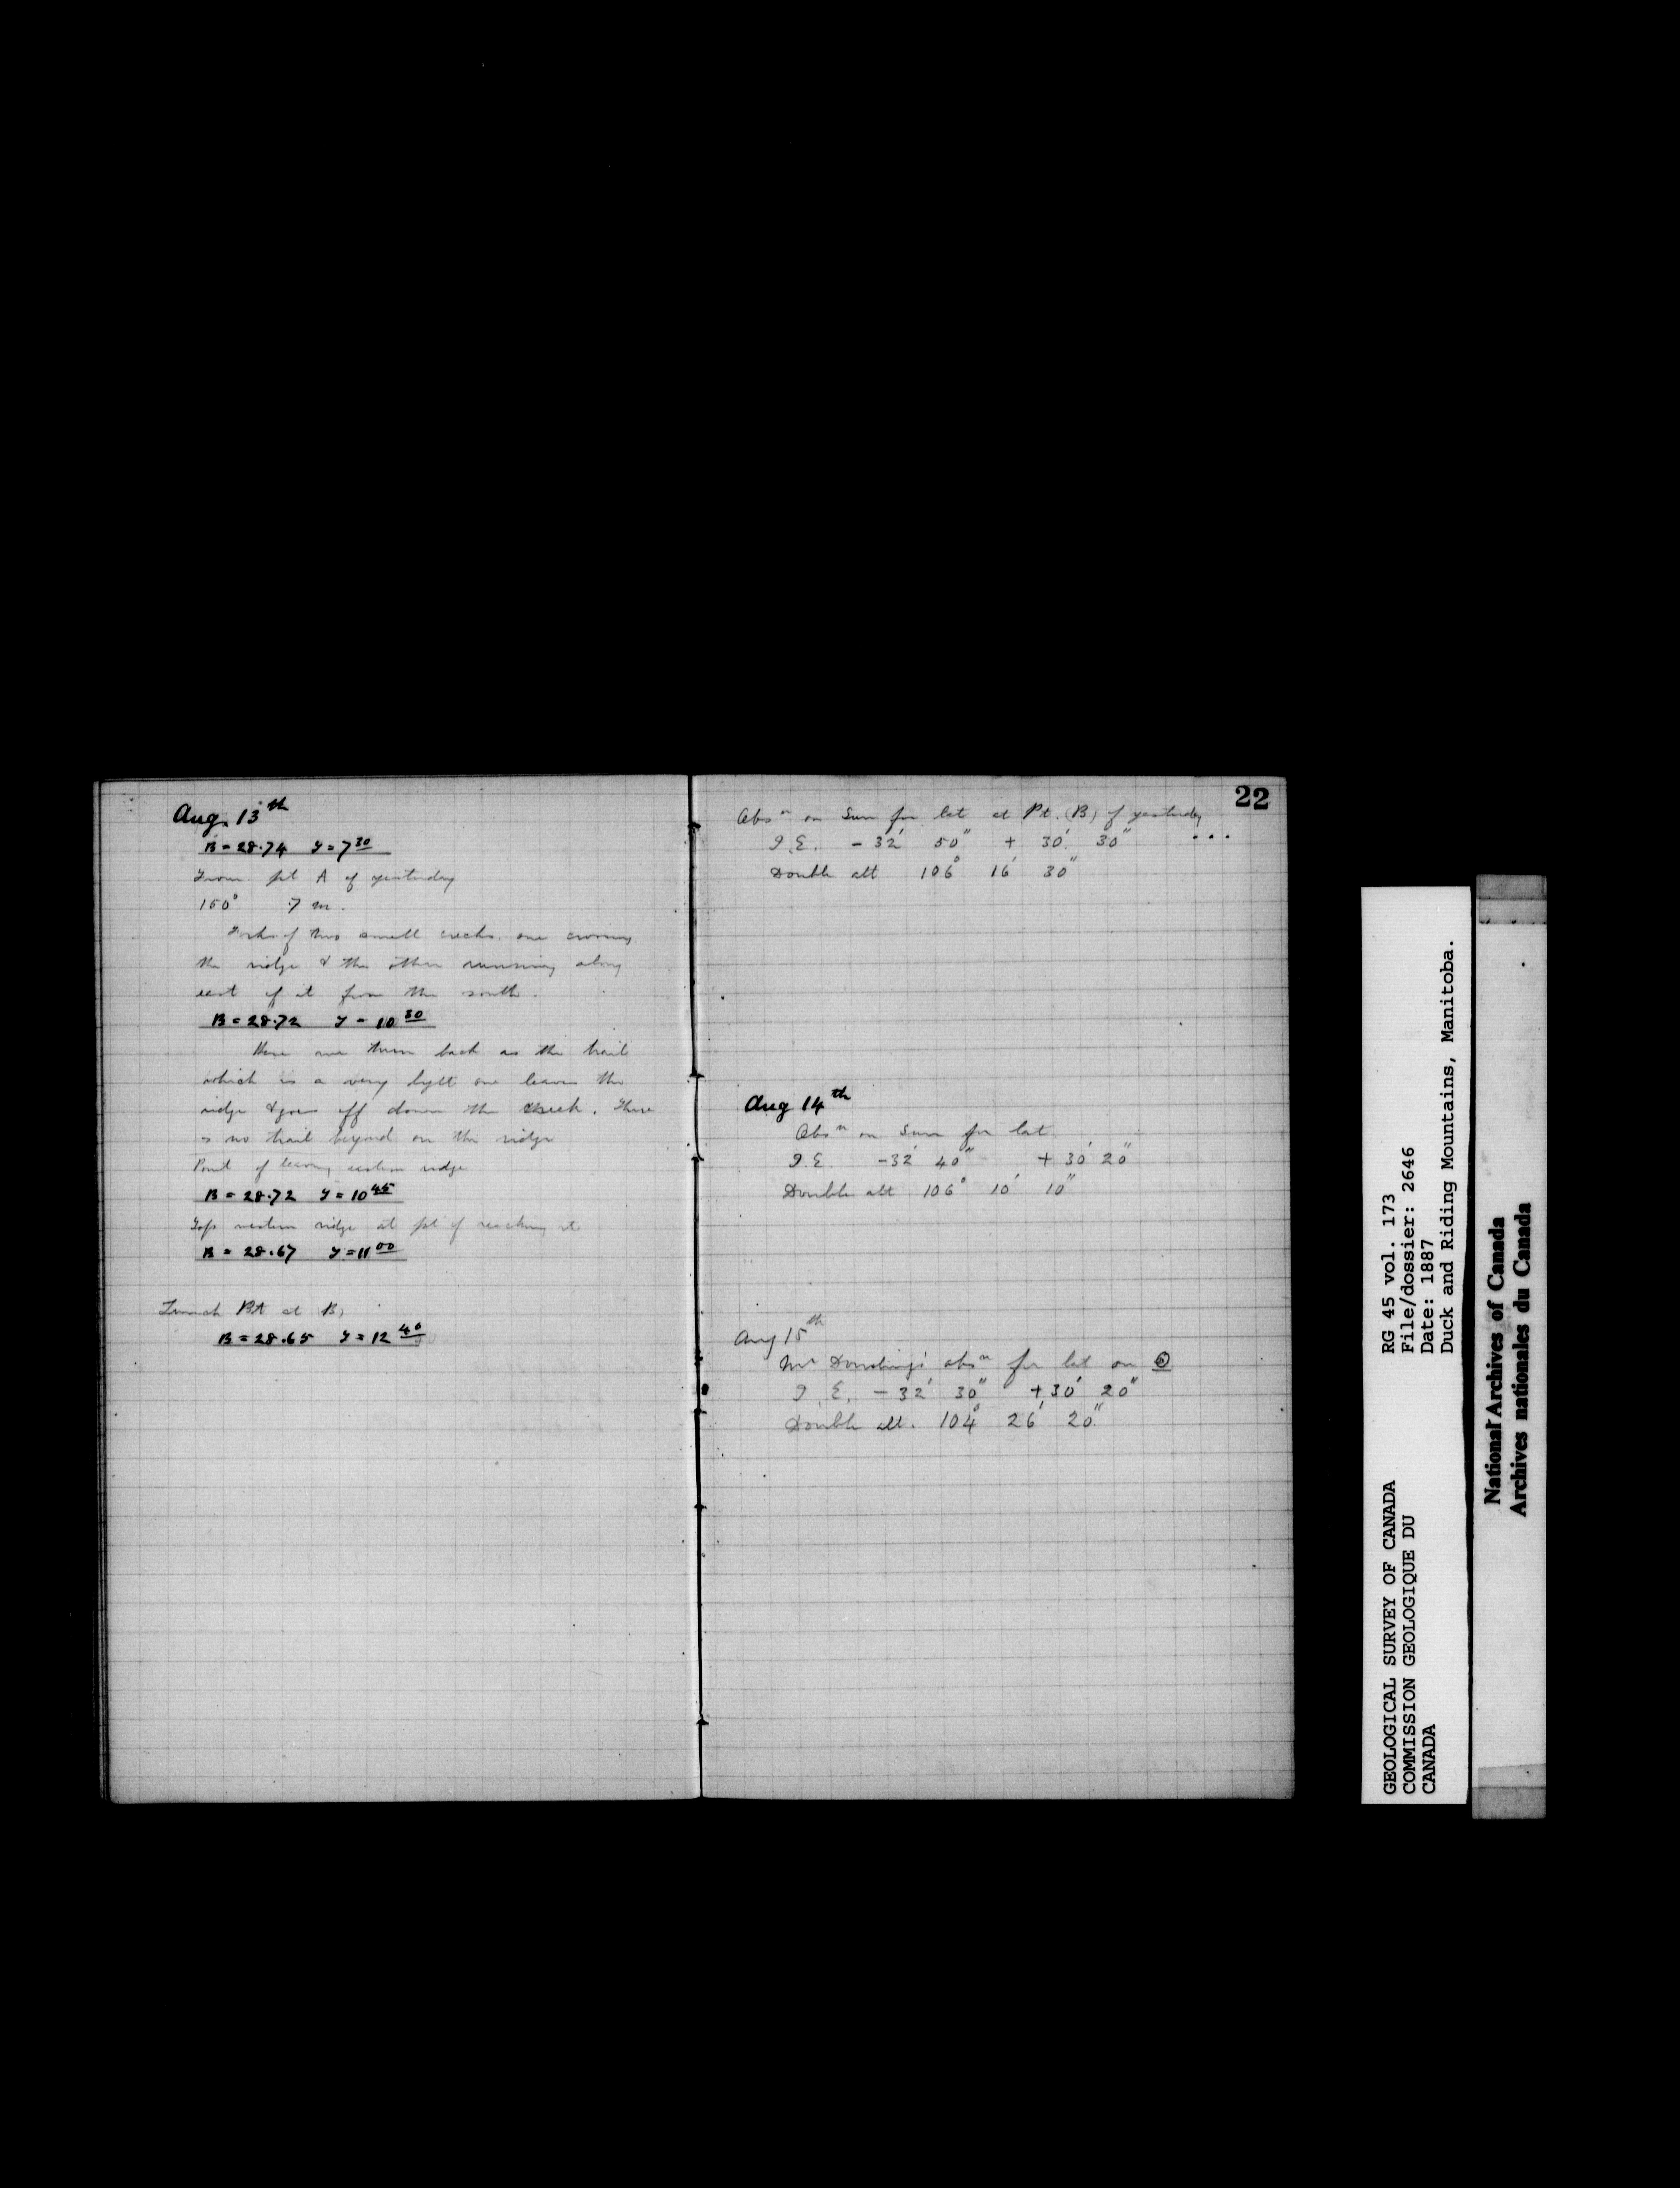 Aug. 13th
B = 28.74 T = 7 30
From pt A of yesterday
150° .7 m.
Forks of two small creeks. one crossing
the ridge & the other running along
east of it from the south.
B = 28.72 T = 10 30
Here we turn back as the trail
which is a very light one leaves the
ridge & goes off down the creek. There
is no trail beyond on the ridge
Point of leaving eastern ridge
B = 28.72 T = 10 45
Top western ridge at pt of reaching it
B = 28.67 T = 11 00
Lunch Pt at B)
B = 28.65 T = 12 40
22
Obsn on Sun for lat at Pt. (B) of yesterday
I.E. - 32' 50" + 30' 30"
Double alt 106° 16' 30"
Aug 14th
Obsn on Sun for lat.
I.E. - 32' 40" + 30' 20"
Double alt 106° 10' 10"
Aug 15th
Mr Dowling's obsn for lat on
I.E. - 32' 30" + 30' 20"
Double alt. 104° 26' 20"
GEOLOGICAL SURVEY OF CANADA
COMMISSION GEOLOGIQUE DU
CANADA
RG 45 vol. 173
File/dossier: 2646
Date: 1887
Duck and Riding Mountains, Manitoba.
National Archives of Canada
Archives nationales du Canada